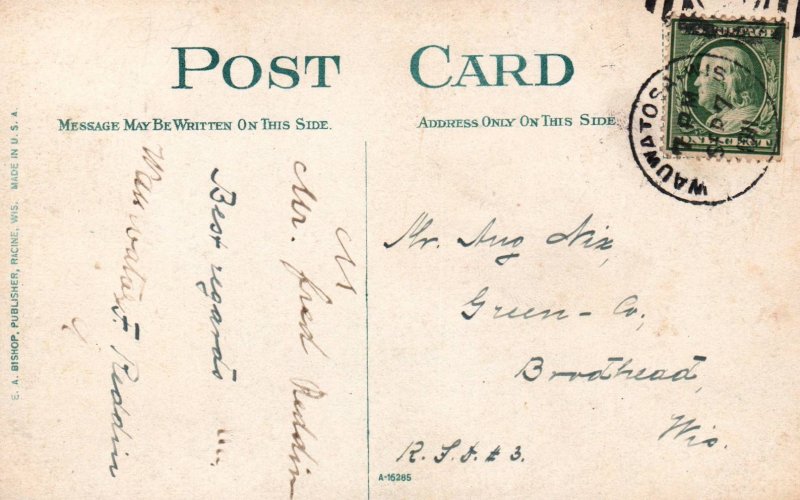 POST CARD
MESSAGE MAY BE WRITTEN ON THIS SIDE.
ADDRESS ONLY ON THIS SIDE
E. A. BISHOP, PUBLISHER, RACINE, WIS. MADE IN U.S.A.
Mr. fred Reddin
Best regards
F. Reddin
WAUWATOSA WIS
Mr. Aug Nix,
Green-Co,
Brodhead,
Wis.
R.F.D. #3.
A-16285